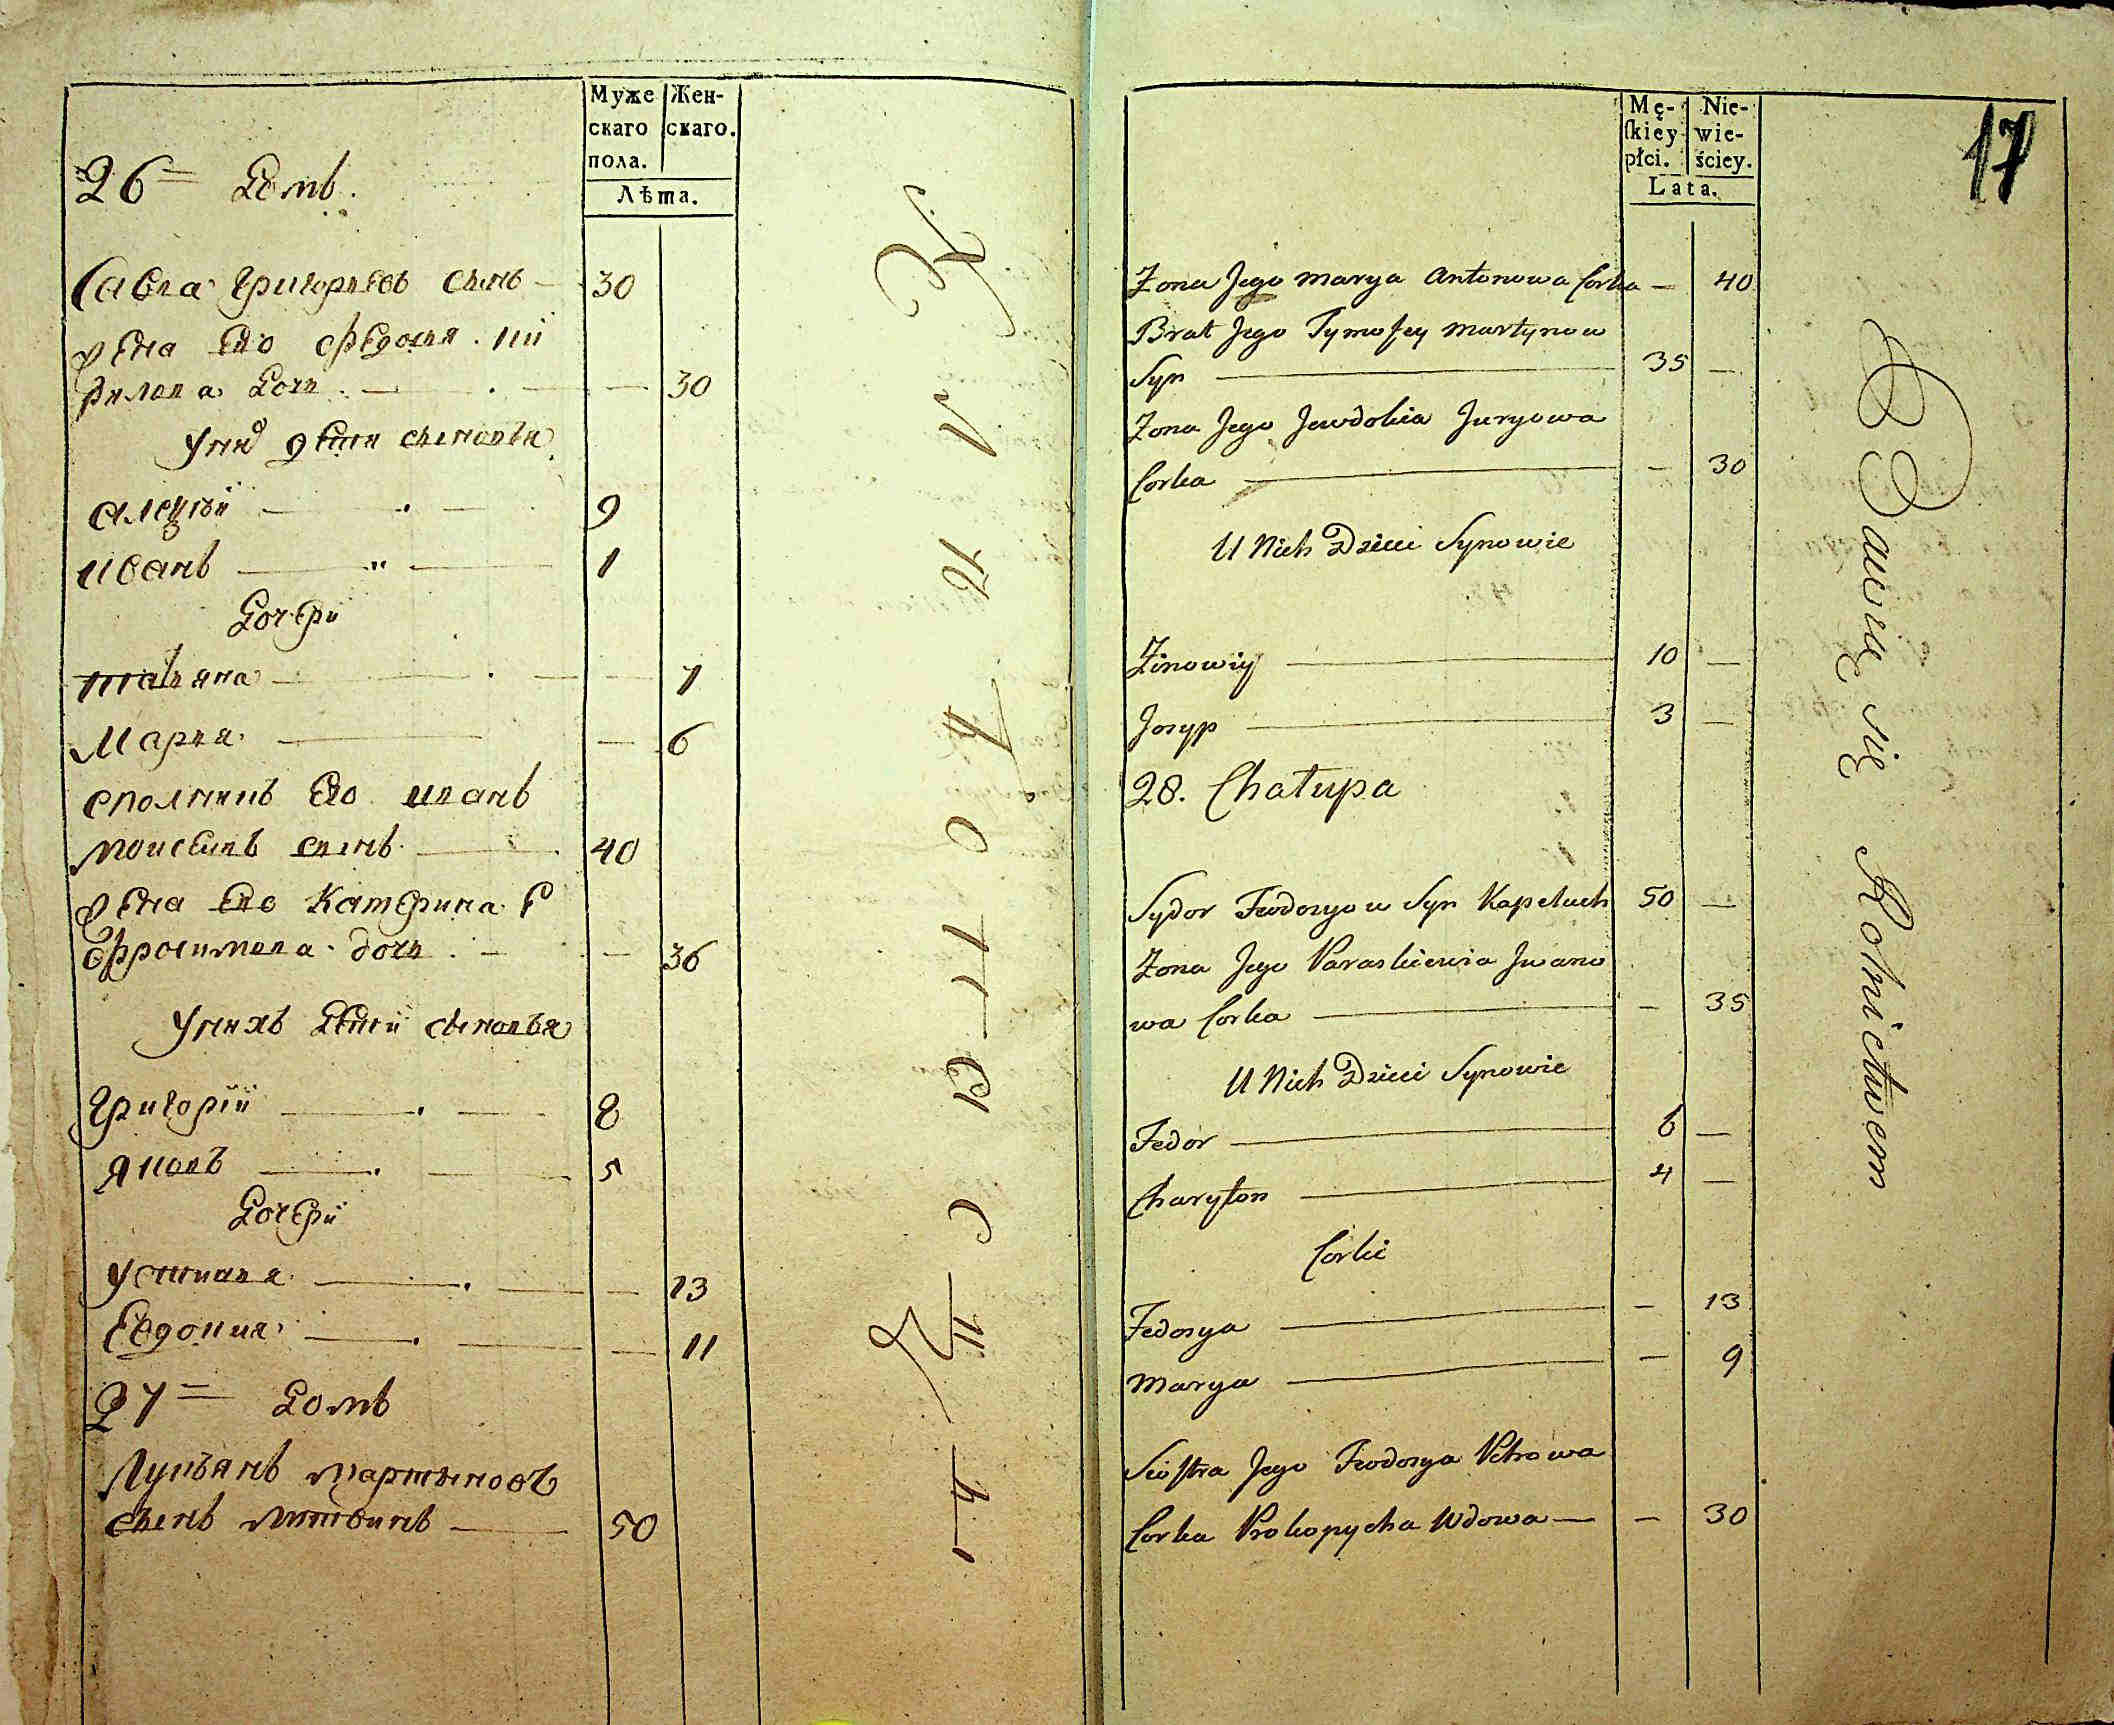 Муже
скаго
пола.
Жен-
скаго.
Лѣта.
26 = Домъ.
Савва Григорьевъ сынъ — 30
жена Его Федосия
Дочь — 30
У них дети сыновья
Алексѣй — 9
Иванъ — 1
Дочери
Татьяна — 7
Мария — 6
Его Иванъ
Моисеивъ сынъ — 40
жена Его Катерина Е
Дочь — 36
У нихъ Дети сыновья
Григорій — 8
Яковъ — 5
Дочери
Устиния — 13
Евдокия — 11
27 = Домъ
Лукъянъ Мартыновъ
сынъ Литвинъ — 50
17
Mę-
ſkiey
płci.
Nie-
wie-
ściey.
Lata.
Zona Jego Marya Antonowa Corka — 40
Brat Jego Tymofey Martynow
Syn — 35 —
Zona Jego Jewdokia Juryowa
Corka — — 30
U Nich Dzieci Synowie
Zinowiy — 10 —
Josyp — 3 —
28. Chałupa
Sydor Feodosyow Syn Kapeluch 50 —
Zona Jego Paraskiewia Jwano
wa Corka — — 35
U Nich Dzieci Synowie
Fedor — 6 —
Charyton — 4 —
Corki
Fedosya — — 13
Marya — — 9
Siostra Jego Feodosya Petrowa
Corka Prokopycha Wdowa — — 30
Bawię się Rolnictwem